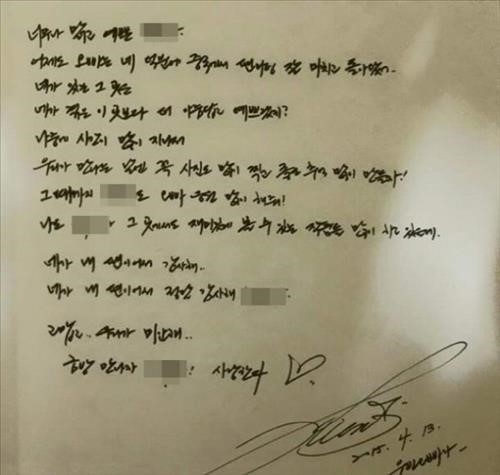 너무나 맑고 예쁜
어제도 오빠는 네 덕분에 중국에서 팬미팅 잘 마치고 돌아왔어..
네가 있는 그 곳은
네가 살던 이 곳보다 더 아름답고 예쁘겠지?
나중에 시간이 많이 지나서
우리가 만나는 날엔 꼭 사진도 많이 찍고 좋은 추억 많이 만들자!
그때까지 도 오빠 응원 많이 해줘!
나도 가 그 곳에서도 재미있게 볼 수 있는 작품들 많이 하고 있을게.
네가 내 팬이어서 감사해..
네가 내 팬이어서 정말 감사해
고맙고.. 미안해..
금방 만나자 ! 사랑한다 ♡
2015. 4. 13.